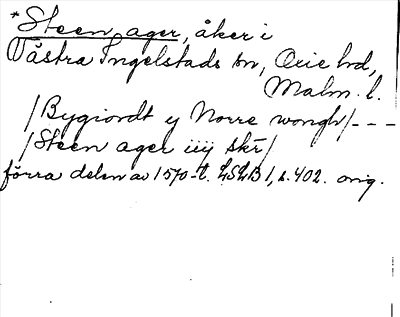 *Steen ager, åker i
Västra Ingelstads sn, Oxie hd,
Malm. l.
/Bygiordt y Norre wongh/---
/Steen ager iiij skr/
förra delen av 1570-t. LSLB 1, s. 402. orig.